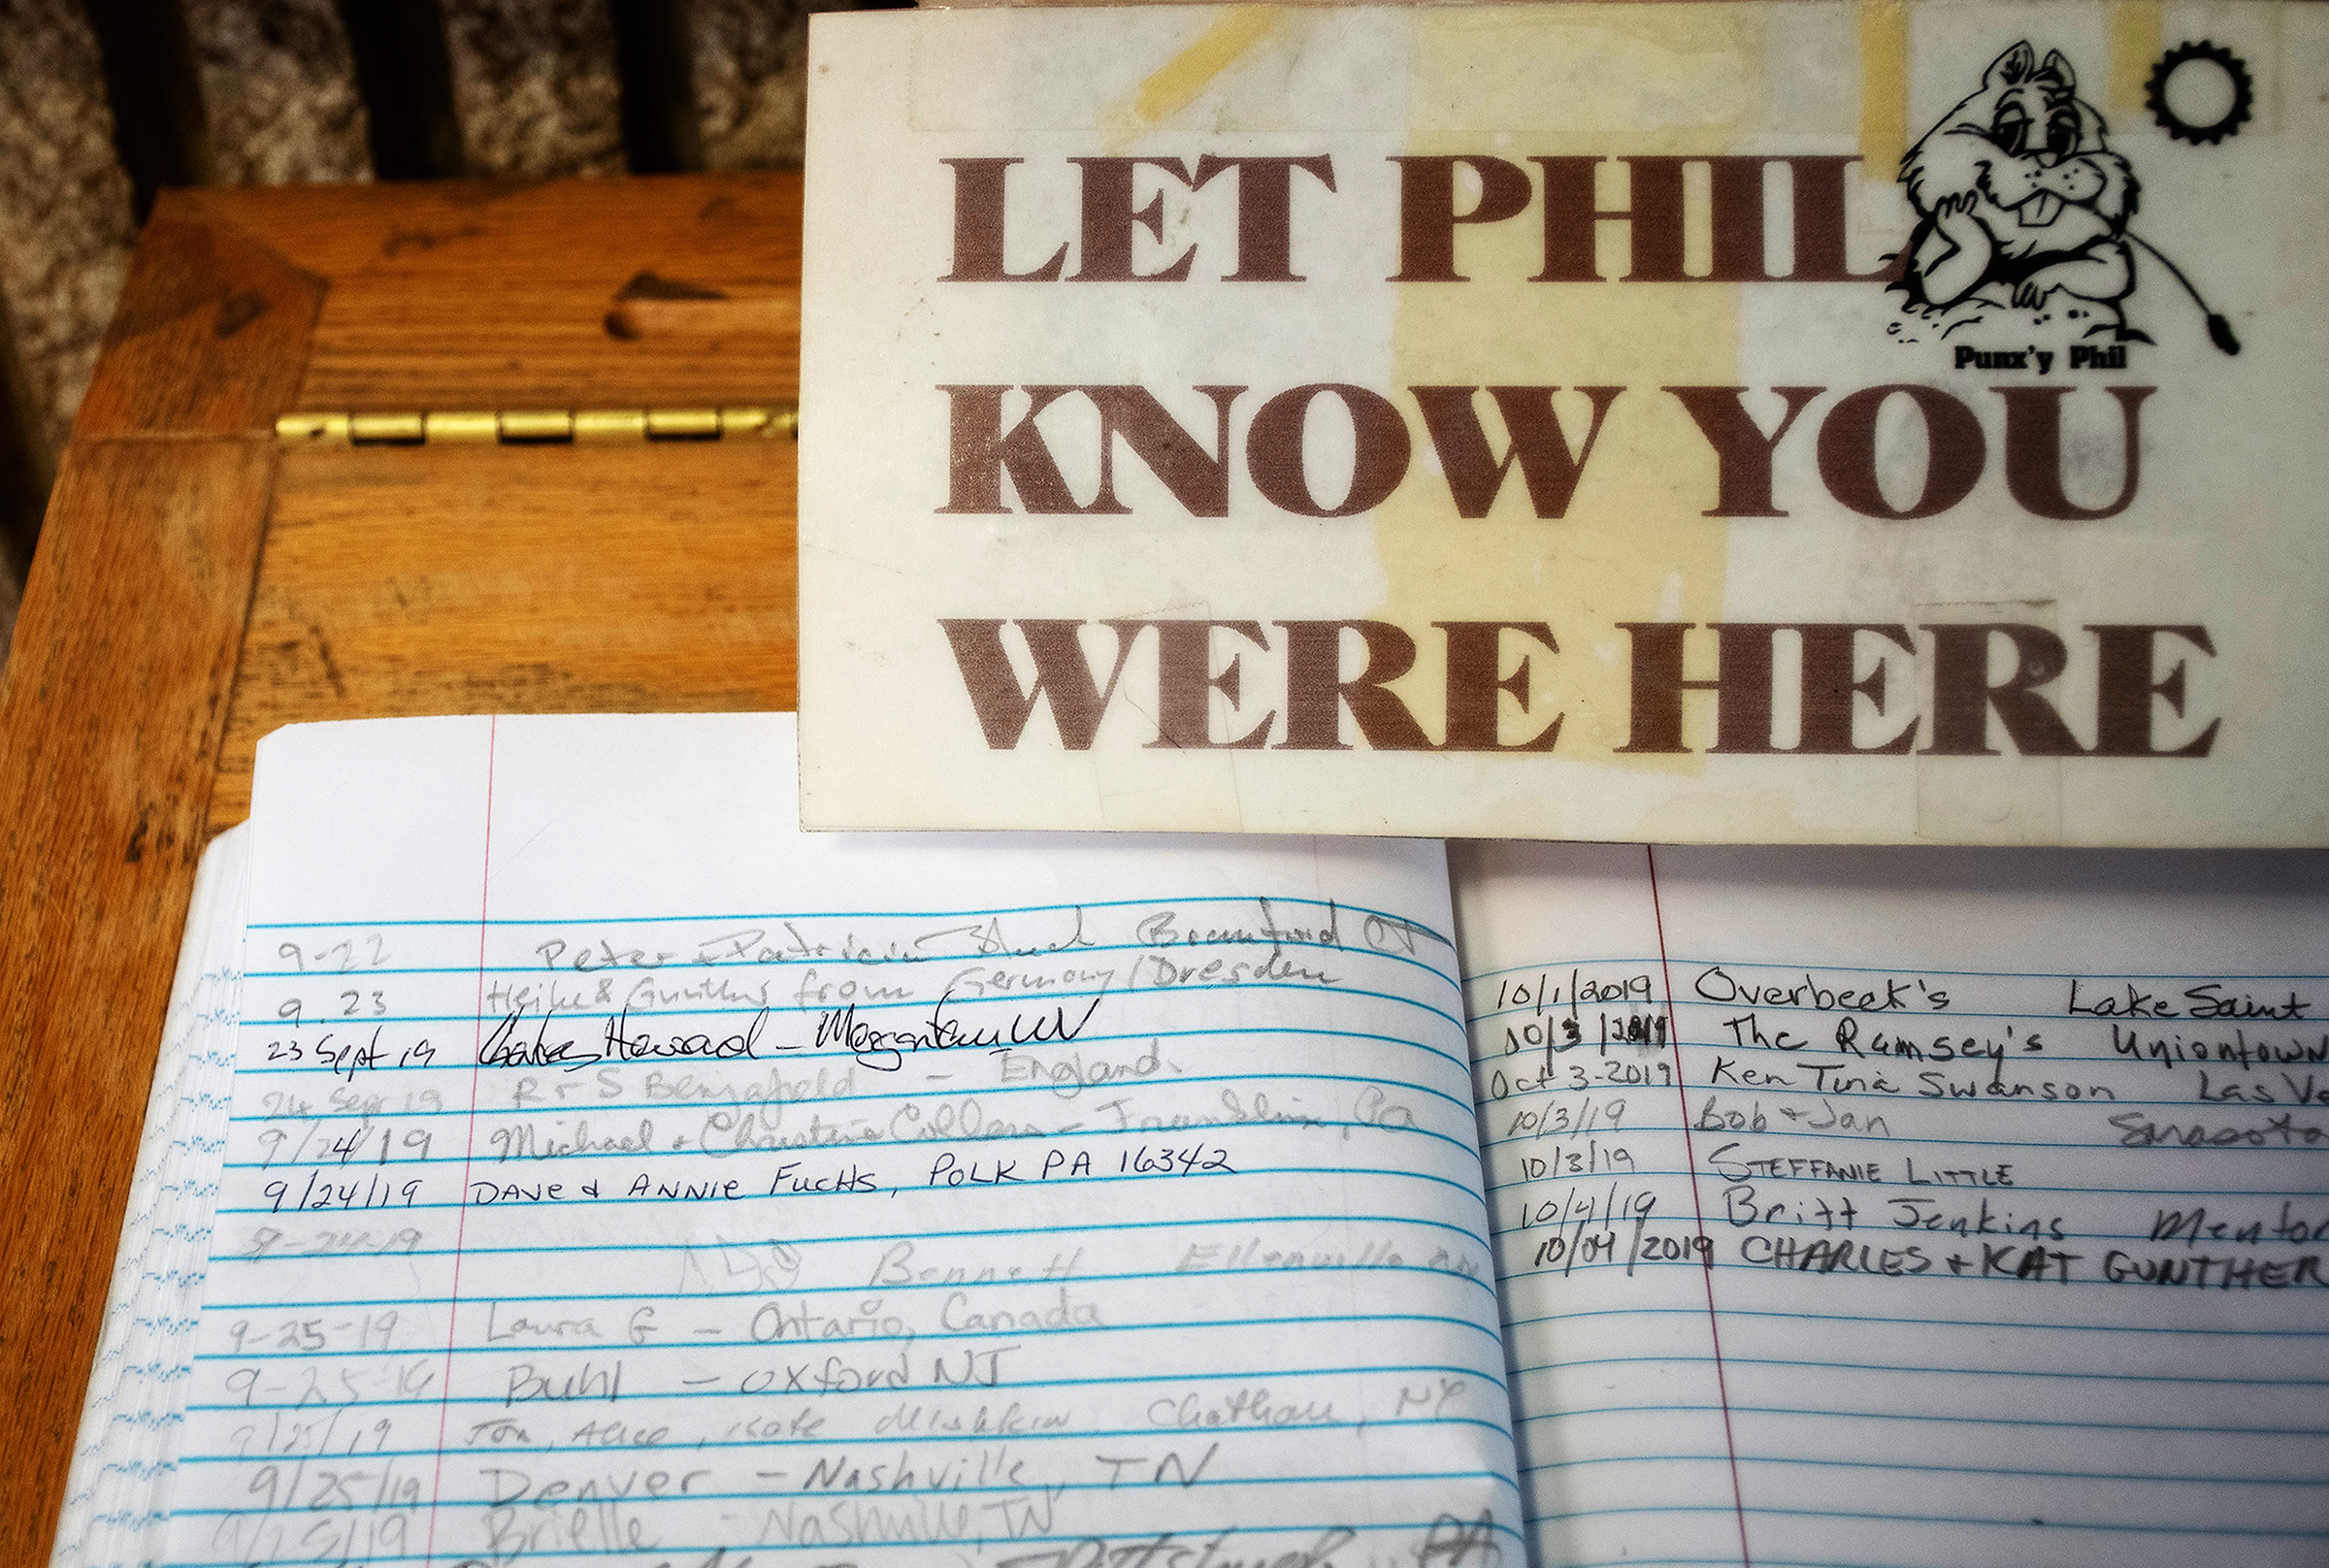 LET PHIL
Punx'y Phil
KNOW YOU
WERE HERE
9-22 Peter + Patricia Branford CT
9.23 Heike & from Germany / Dresden
23 Sept 19 Howard - Morgantown WV
24 Sep 19 R + S - England.
9/24/19 Michael + Christine - Franklin, PA
9/24/19 DAVE & ANNIE FUCHS, POLK PA 16342
9-24-19 Bennett Ellenville
9-25-19 Laura G - Ontario, Canada
9-25-19 Buhl - Oxford NJ
9/25/19 Jon, Alice, Kate Chatham, NY
9/25/19 Denver - Nashville, TN
9/25/19 Brielle - Nashville, TN
PA
10/1/2019 Overbeek's Lake Saint
10/3/2019 The Ramsey's Uniontown
Oct 3-2019 Ken Tina Swanson Las Ve
10/3/19 Bob + Jan Sarasota
10/3/19 STEFFANIE LITTLE
10/4/19 Britt Jenkins Mentor
10/04/2019 CHARLES + KAT GUNTHER